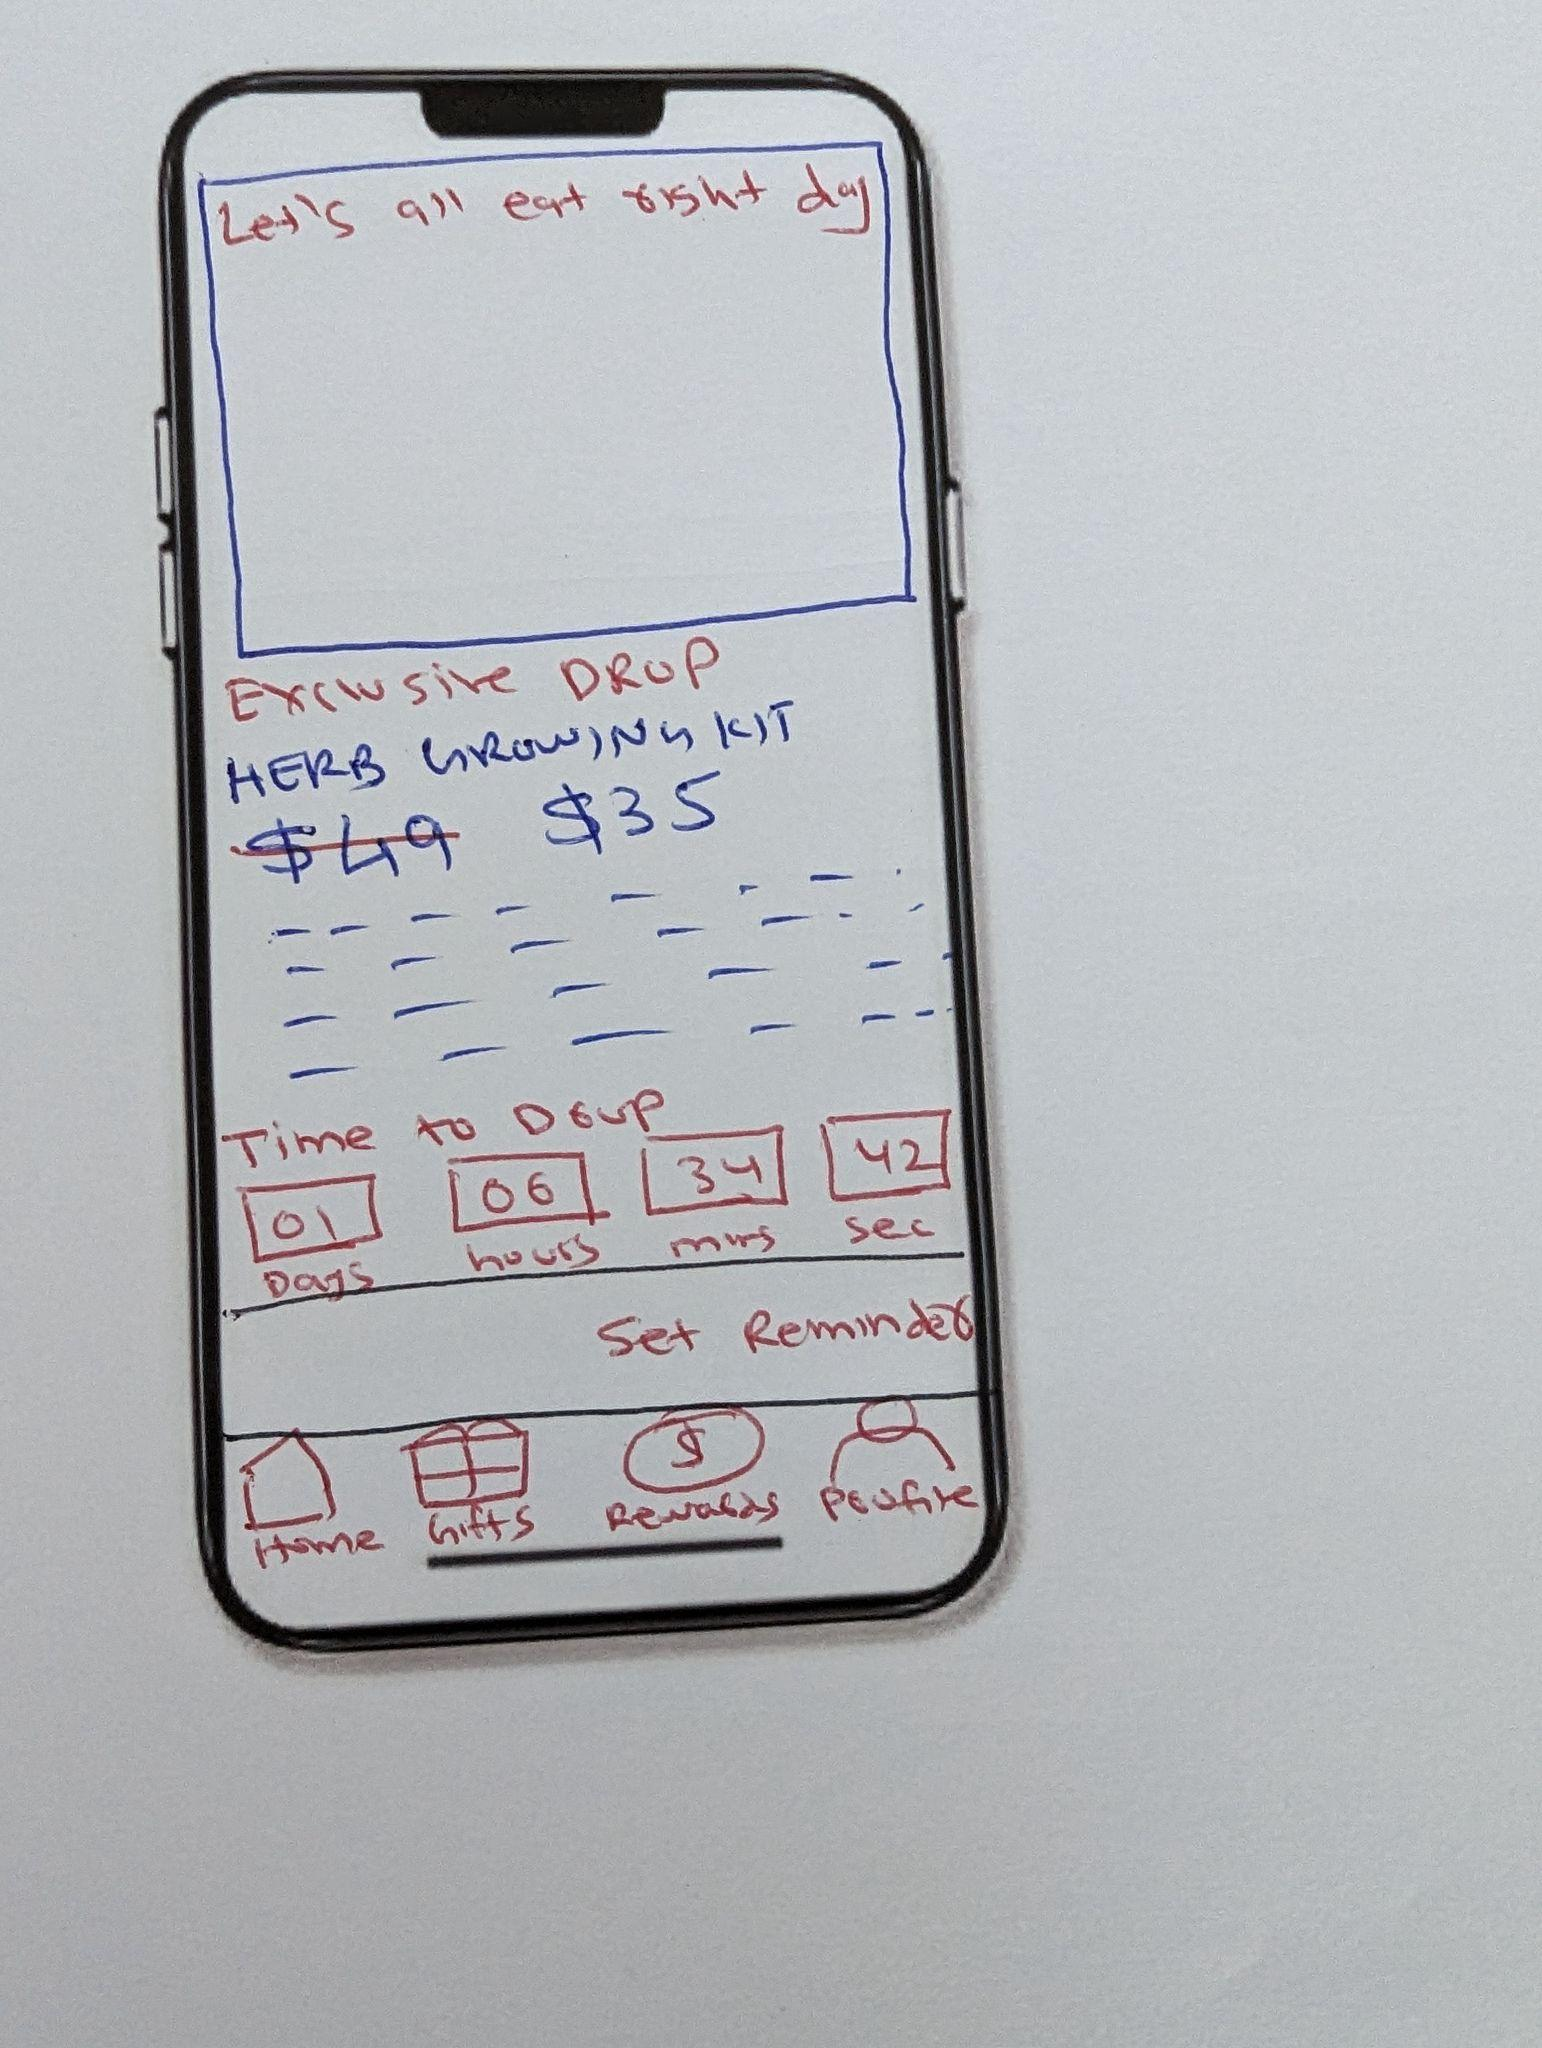 Let's all eat right day
Exclusive DROP
HERB GROWING KIT
$49 $35
Time to Drop
01 06 34 42
Days hours mins sec
Set Reminder
$
Home Gifts Rewards Profile